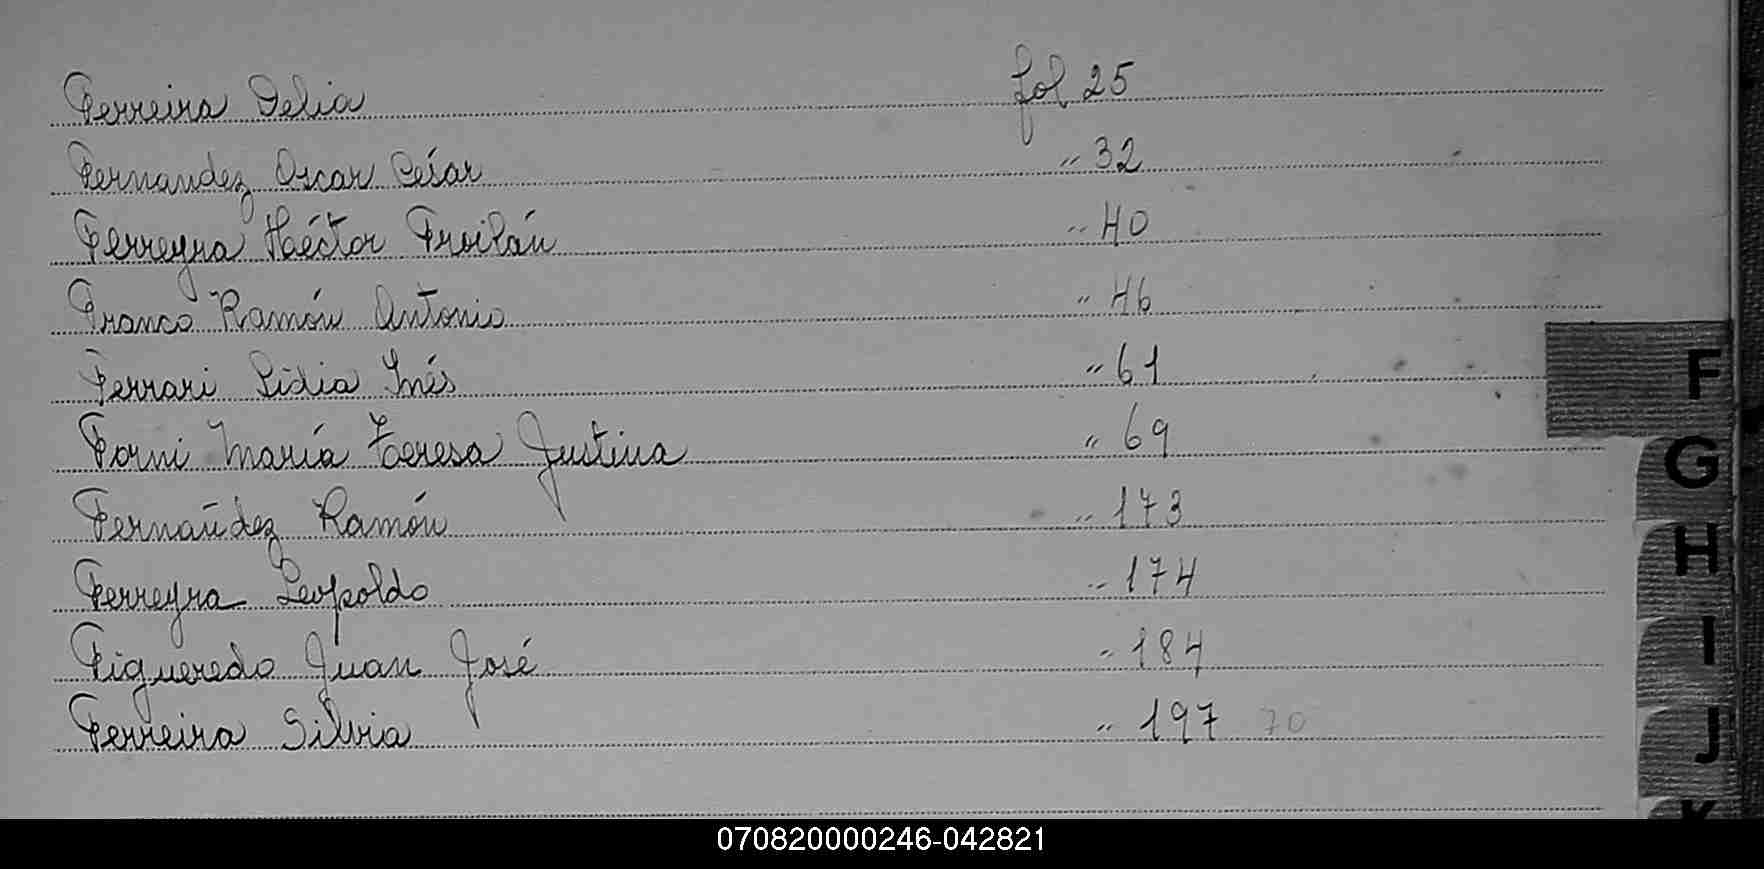 Ferreira Delia fol 25
Fernandez Oscar César " 32
Ferreyra Héctor Froilán " 40
Franco Ramón Antonio " 46
Ferrari Lidia Inés " 61
Forni María Teresa Justina " 69
Fernández Ramón " 173
Ferreyra Leopoldo " 174
Figueredo Juan José " 184
Ferreira Silvia " 197 70
F
G
H
I
J
K
070820000246-042821